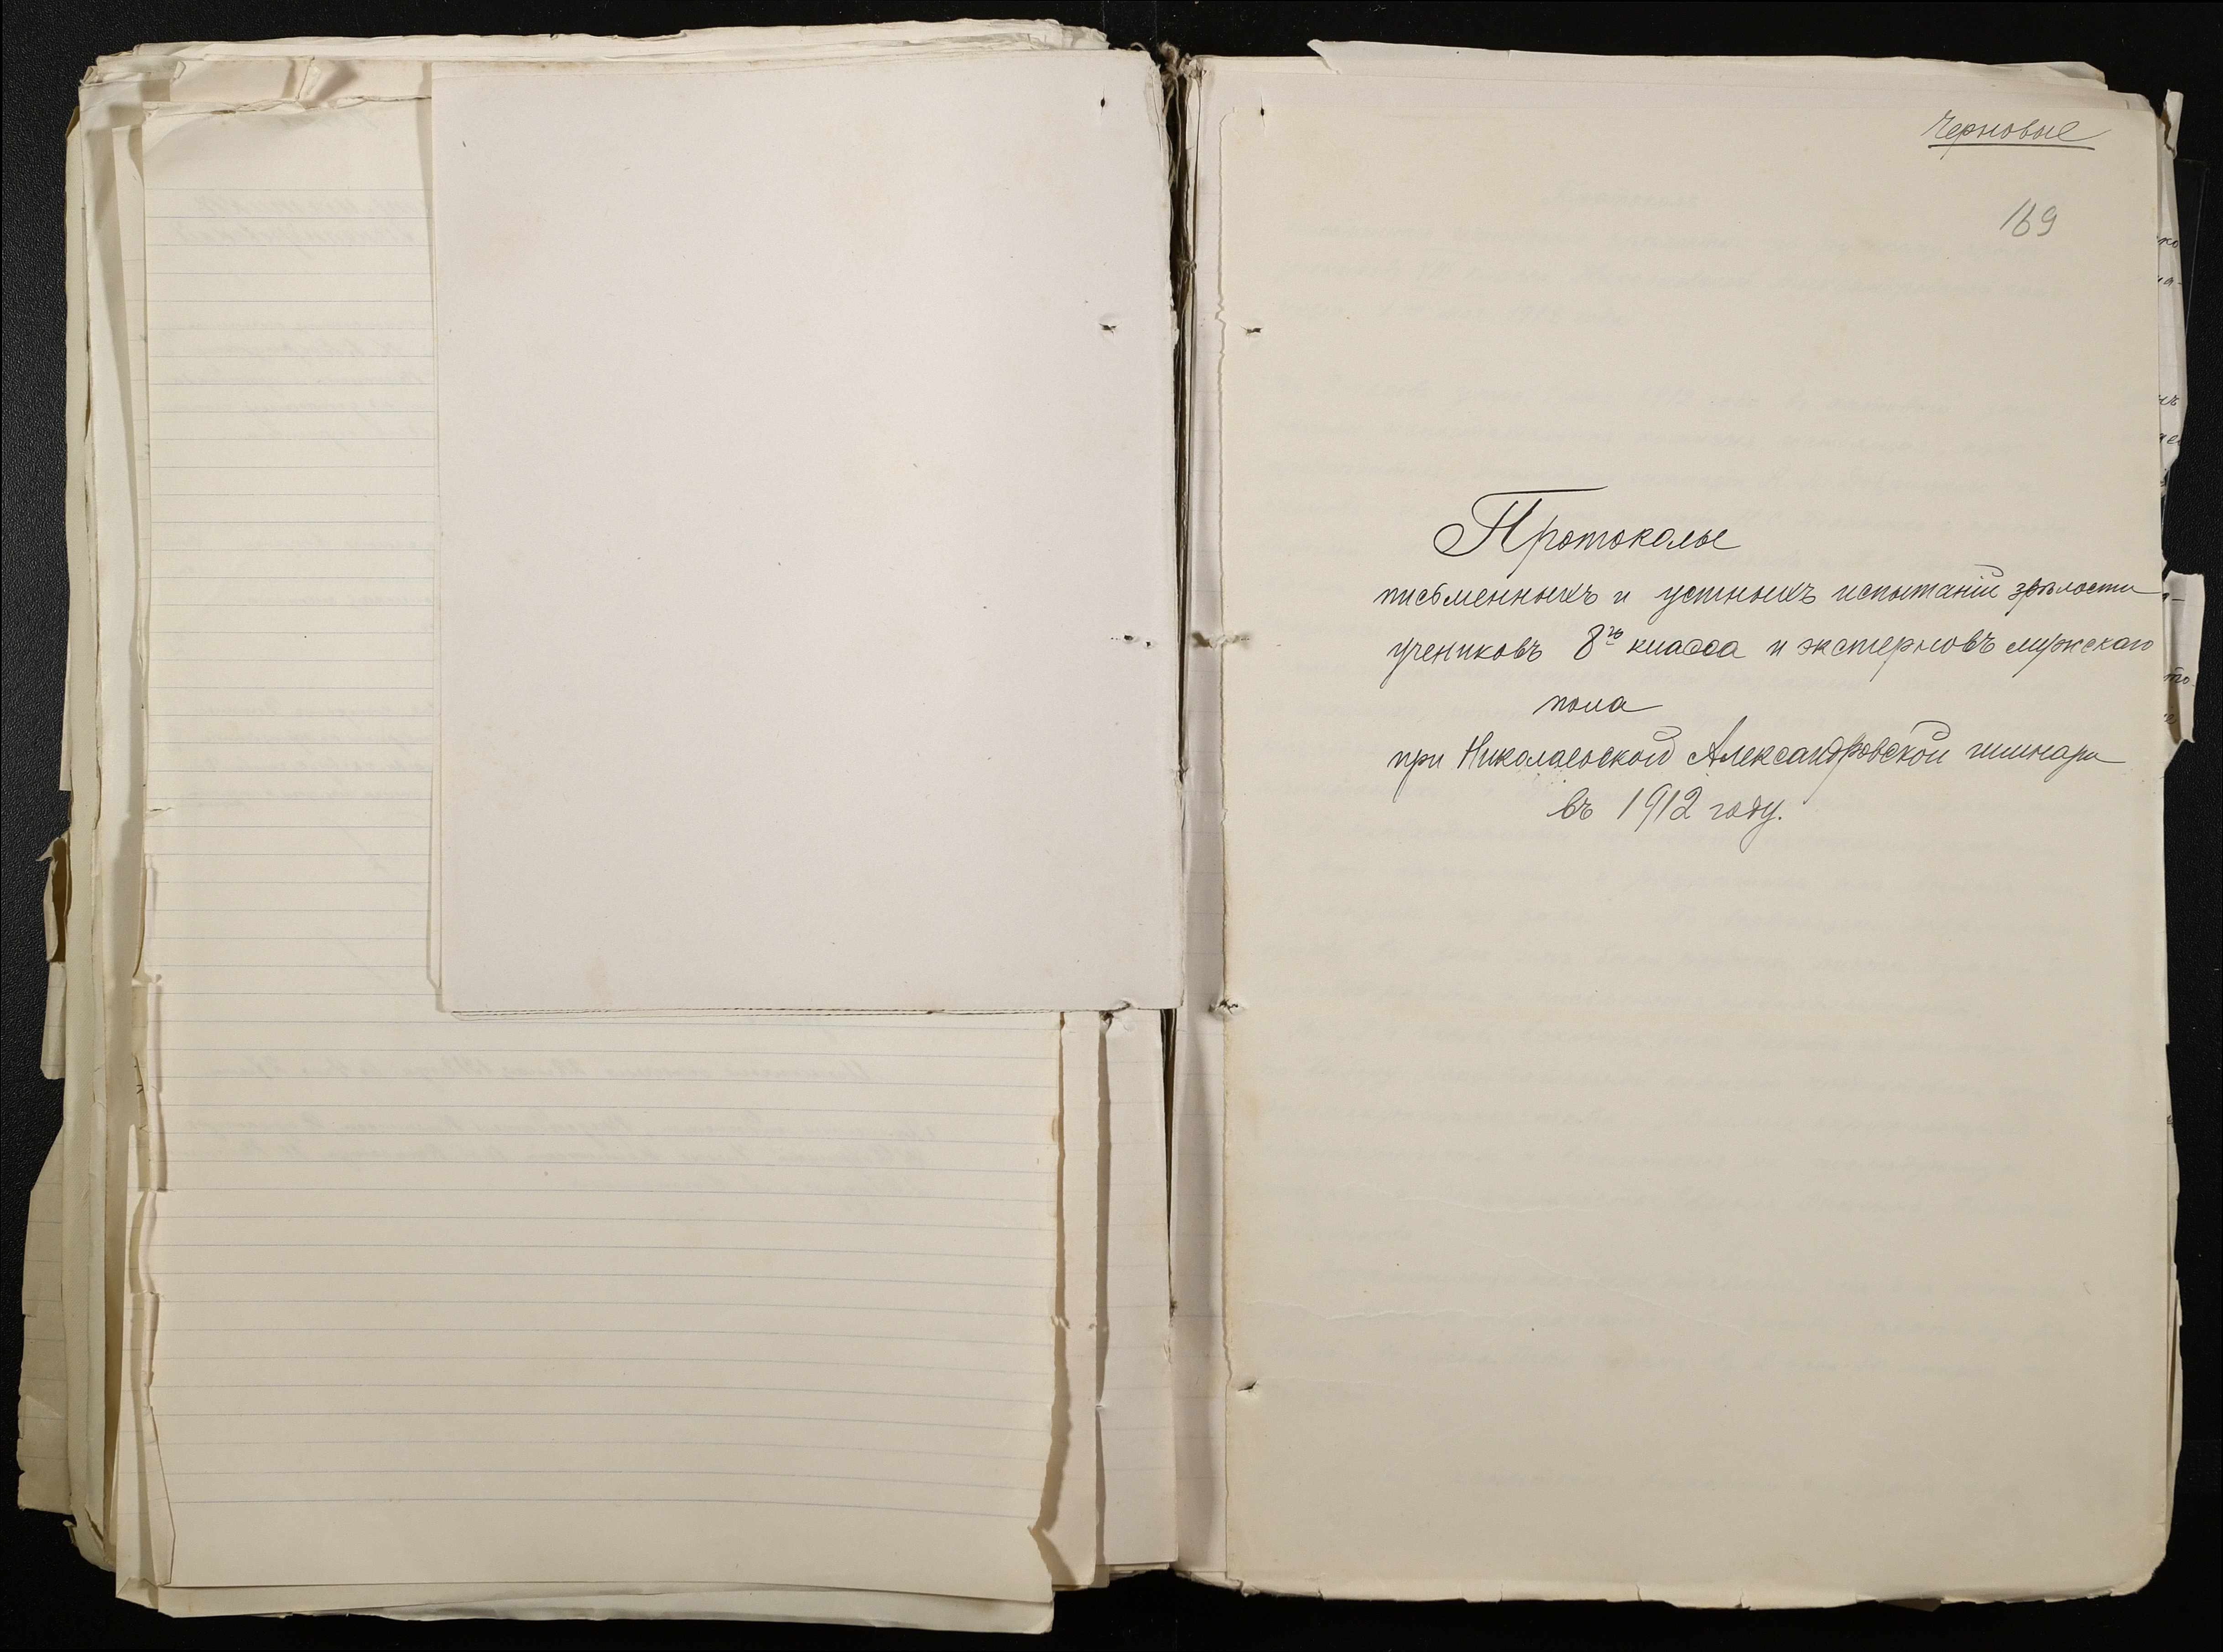 Черновые
169
Протоколы
письменныхъ и устныхъ испытаній зрѣлости
учениковъ 8го класса и экстерновъ мужскаго
пола
при Николаевской Александровской гимназіи
въ 1912 году.